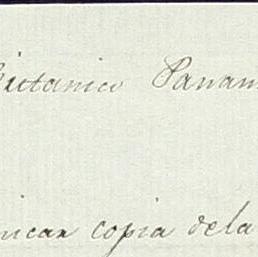 Britanico Panam
nicar copia dela